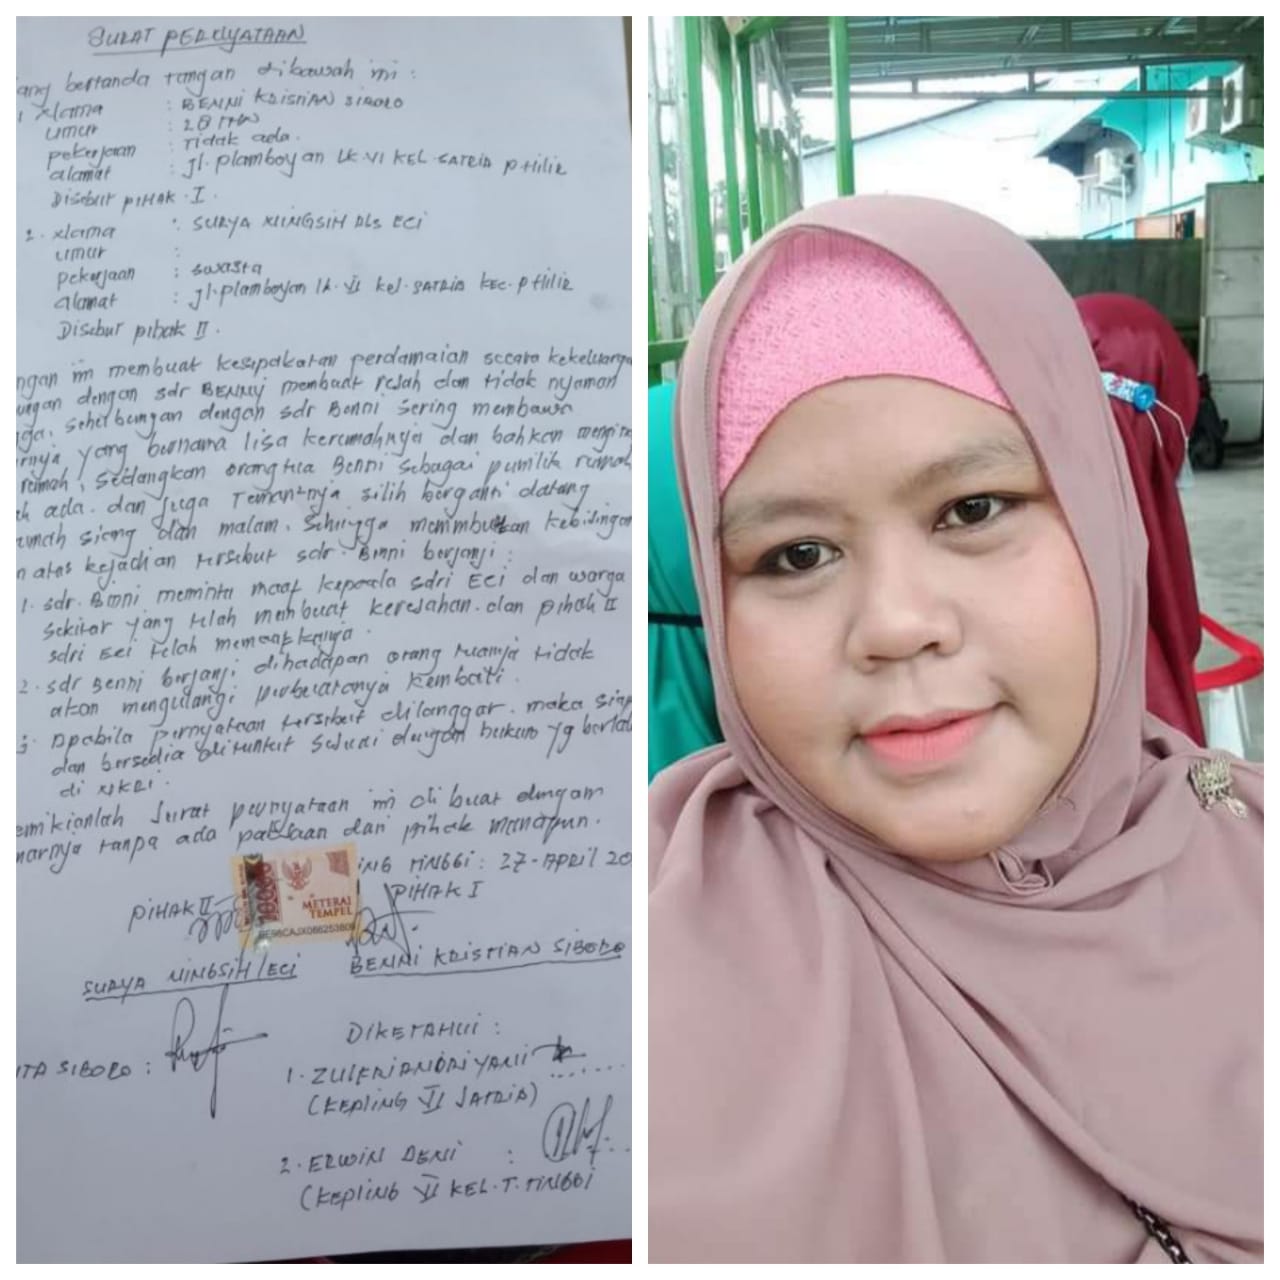 SURAT PERNYATAAN
ang bertanda tangan dibawah ini :
1 Nama : BENNI KRISTIAN SIBORO
umur : 28 THN
pekerjaan : Tidak ada.
alamat : jl. plamboyan LK VI KEL. SATRIA P Hilir
Disebut PIHAK I.
2. Nama : SURYA NINGSIH Als ECI
umur :
Pekerjaan : swasta
alamat : jl. plamboyan lk. VI kel. SATRIA KEC. P Hilir
Disebut pihak II.
ngan ini membuat kesepakatan perdamaian secara kekeluarga
ungan dengan sdr BENNI membuat resah dan tidak nyaman
ga, sehubungan dengan sdr Benni sering membawa
rnya yang bernama lisa kerumahnya dan bahkan mengina
rumah, sedangkan orangtua Benni sebagai pemilik rumah
k ada. dan juga Teman2nya silih berganti datang
umah siang dan malam. Sehingga menimbulkan kebisingan
n atas kejadian tersebut sdr. Benni berjanji :
1. sdr. Benni meminta maaf kepada sdri Eci dan warga
sekitar yang telah membuat keresahan. dan pihak II
sdri Eci telah memaafkannya.
2. sdr Benni berjanji dihadapan orang tuanya tidak
akan mengulangi perbuatanya kembali.
3. Apabila pernyataan tersebut dilanggar. maka siap
dan bersedia dituntut sesuai dengan hukum yg berlaku
di NKRI.
emikianlah surat pernyataan ini di buat dengam
narnya tanpa ada paksaan dari pihak manapun.
ING TINGGI : 27 - APRIL 20
PIHAK II
PIHAK I
10000
METERAI
TEMPEL
SURYA NINGSIH / ECI
BENNI KRISTIAN SIBORO
DIKETAHUI :
ITA SIBORO :
1. ZULFRIANDRIYANII
(KEPLING VI SATRIA)
2. ERWIN DENI :
(KEPLING VI KEL. T. TINGGI